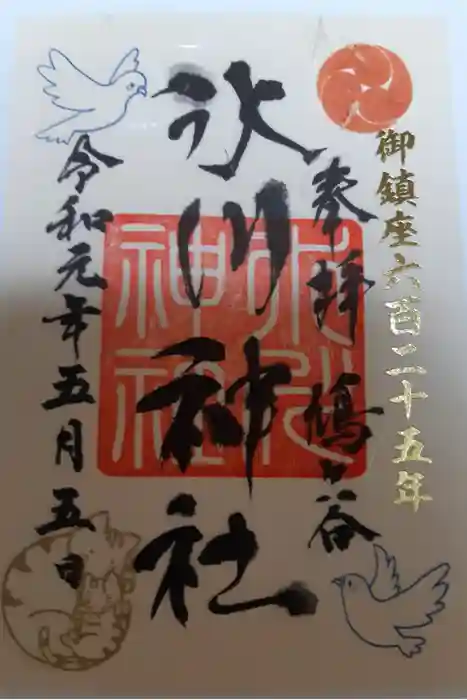 御鎮座六百二十五年
奉拝 鳩ヶ谷
氷川神社
氷川神社
令和元年五月五日